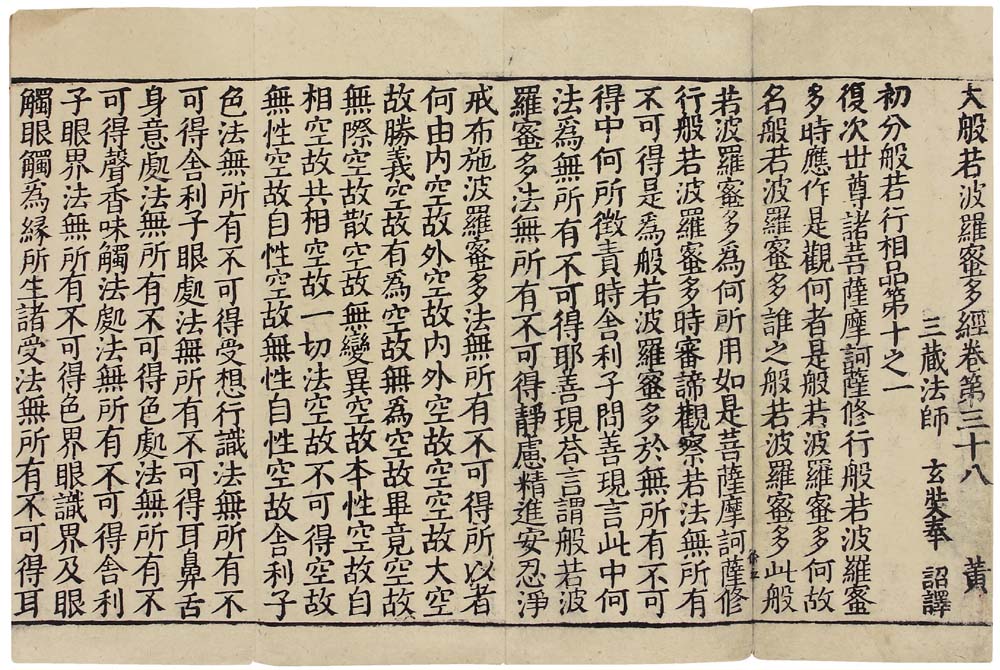 大般若波羅蜜多經卷第三十八 黃
三藏法師 玄奘奉 詔譯
初分般若行相品第十之一
復次世尊諸菩薩摩訶薩修行般若波羅蜜
多時應作是觀何者是般若波羅蜜多何故
名般若波羅蜜多誰之般若波羅蜜多此般
若波羅蜜多爲何所用如是菩薩摩訶薩修
行般若波羅蜜多時審諦觀察若法無所有
不可得是爲般若波羅蜜多於無所有不可
得中何所徵責時舍利子問善現言此中何
法爲無所有不可得耶善現荅言謂般若波
羅蜜多法無所有不可得靜慮精進安忍淨
戒布施波羅蜜多法無所有不可得所以者
何由內空故外空故內外空故空空故大空
故勝義空故有爲空故無爲空故畢竟空故
無際空故散空故無變異空故本性空故自
相空故共相空故一切法空故不可得空故
無性空故自性空故無性自性空故舍利子
色法無所有不可得受想行識法無所有不
可得舍利子眼處法無所有不可得耳鼻舌
身意處法無所有不可得色處法無所有不
可得聲香味觸法處法無所有不可得舍利
子眼界法無所有不可得色界眼識界及眼
觸眼觸爲緣所生諸受法無所有不可得耳